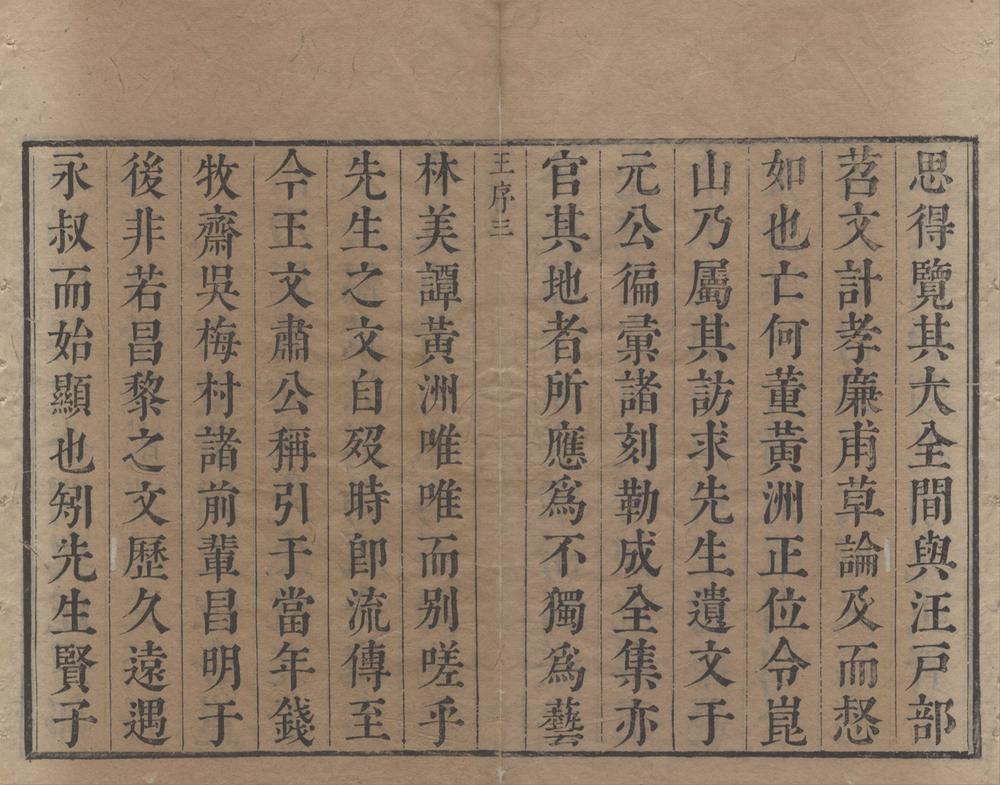 思得覽其大全間與汪戸部
苕文計孝廉甫草論及而愁
如也亡何董黃洲正位令崑
山乃屬其訪求先生遺文于
元公徧彙諸刻勒成全集亦
官其地者所應爲不獨爲藝
王序三
林美譚黃洲唯唯而别嗟乎
先生之文自歿時卽流傳至
今王文肅公稱引于當年錢
牧齋吳梅村諸前輩昌明于
後非若昌黎之文歷久遠遇
永叔而始顯也矧先生賢子